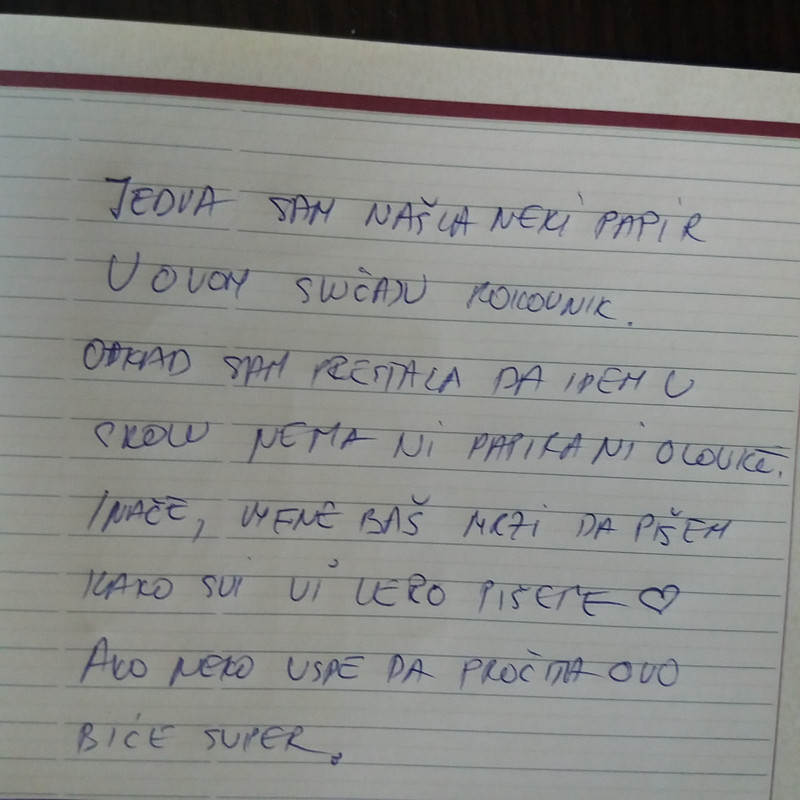 JEDVA SAM NAŠLA NEKI PAPIR
U OVOM SLUČAJU ROKOVNIK.
ODKAD SAM PRESTALA DA IDEM U
ŠKOLU NEMA NI PAPIRA NI OLOVKE.
INAČE, MENE BAŠ MRZI DA PIŠEM
KAKO SVI VI LEPO PIŠETE ♡
AKO NEKO USPE DA PROČITA OVO
BIĆE SUPER.